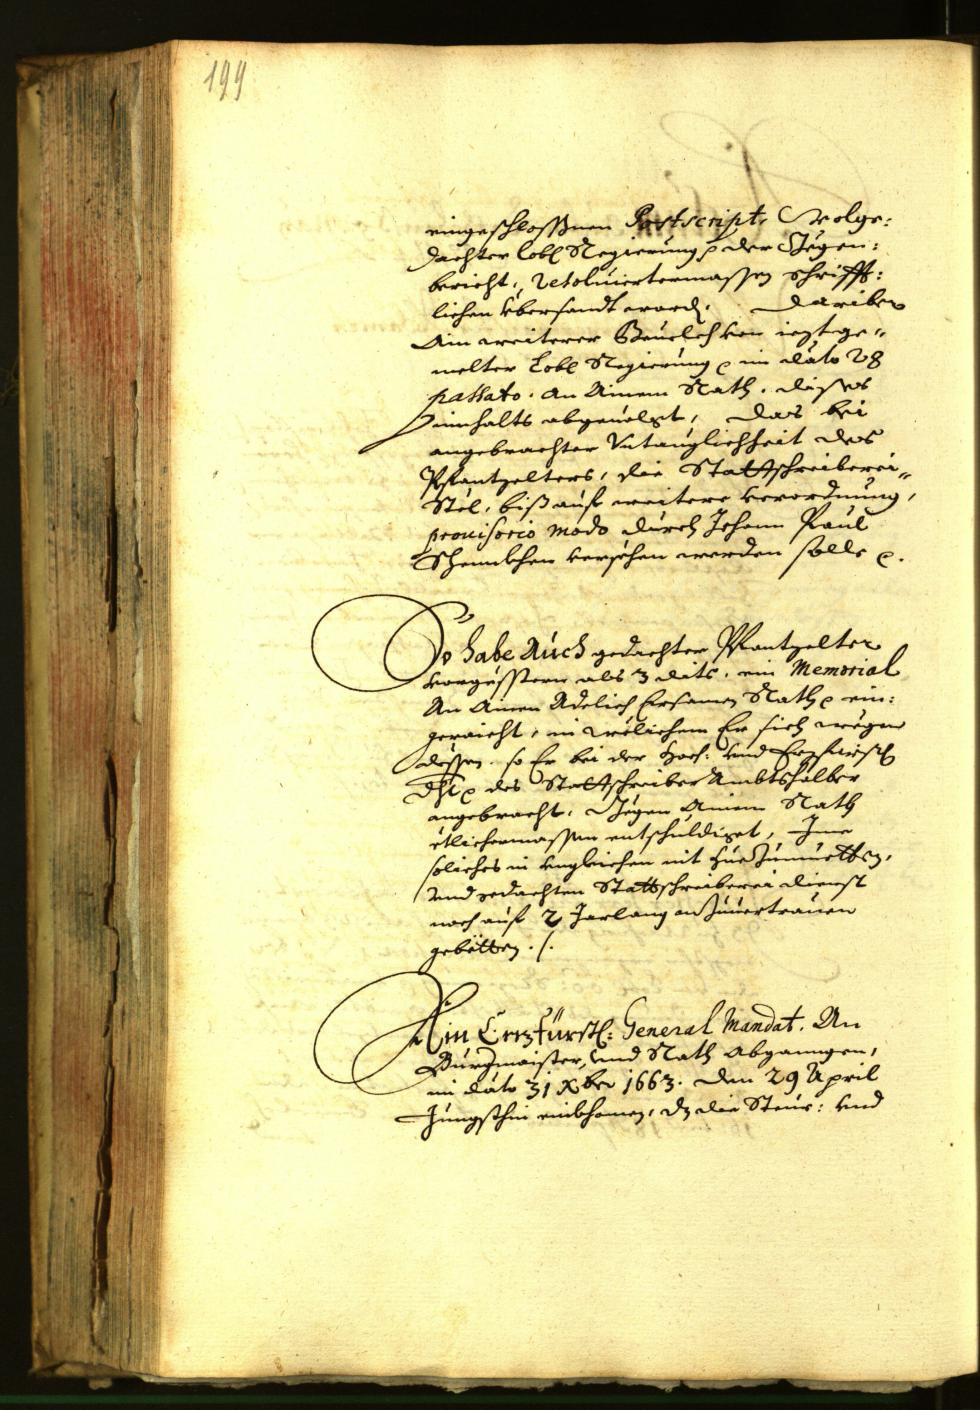 199
eingeschloßnen Postscript, Wolge:
dachter lobl Regierung, der Gegen:
bericht, resoluiertermassen schrifft:
lichen übersandt word. Dariber
Ain weiterer Beuelch von ieztge:
melter Lobl Regierung in dato 28
passato. An Ainem Rath, dises
innhalts abgeuolgt, das bei
angebrachter Vntauglichheit des
Pflantzelters, die Stattschreiberei
Stel, biß auf weitere verordnung,
prouisorio modo durch Johann Paul
versehen werden solle
So habe Auch gedachter Pflantzelter
vorgestern als 3 dits, ein Memorial
An Ainen Adelich Ersamen Rath ein:
geraicht, in welichem Er sich wegen
dessen, so Er bei der Hoch: vnd Erzfürstl
Dht des Stattschreiber Ambtshalber
angebracht, Gegen Ainem Rath
etlichermassen entschuldiget, Ime
soliches in vngleichen nit zuezumuetten,
Vnd gedachten Stattschreiberei dienst
noch auf 2 Jarlang anzuuertrauen
gebetten ./.
Ain Erzfürstl: General Mandat, An
Burgmaister, vnd Rath Abgangen,
in dato 31 Xber 1663. den 29 April
Jüngsthin einkhomen, dz die Steur: vnd